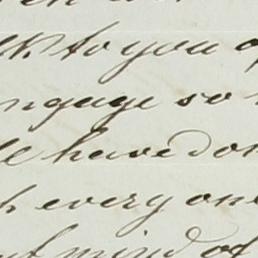 lk to you of
ngage so
ll have don
h every one
mind of